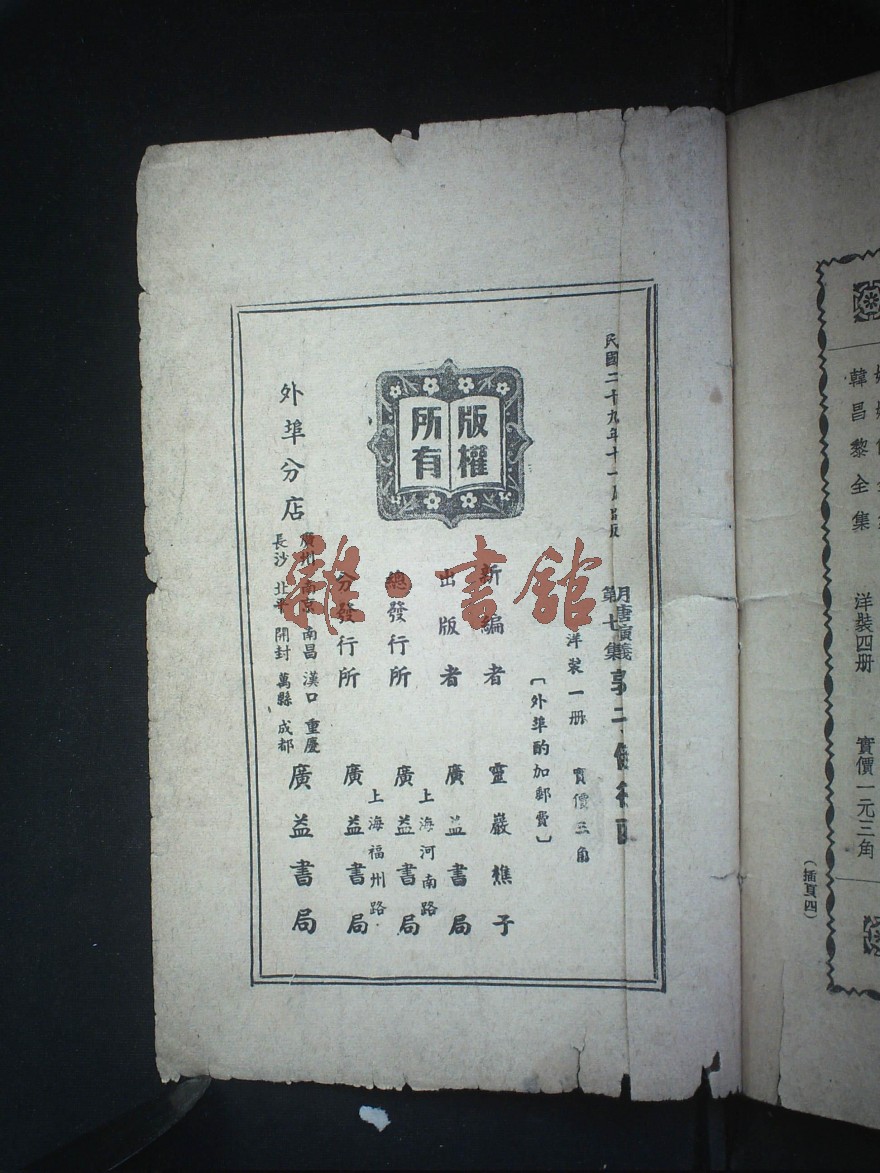 民國二十九年十一月出版
月唐演義
第七集
洋裝一册 實價三角
〔外埠酌加郵費〕
版權
所有
新編者 靈巖樵子
出版者 廣益書局
總發行所 上海河南路 廣益書局
分發行所 上海福州路 廣益書局
外埠分店 廣州 南京 南昌 漢口 重慶
長沙 北平 開封 萬縣 成都 廣益書局
雜·書館
韓昌黎全集 洋裝四册 實價一元三角
(插頁四)